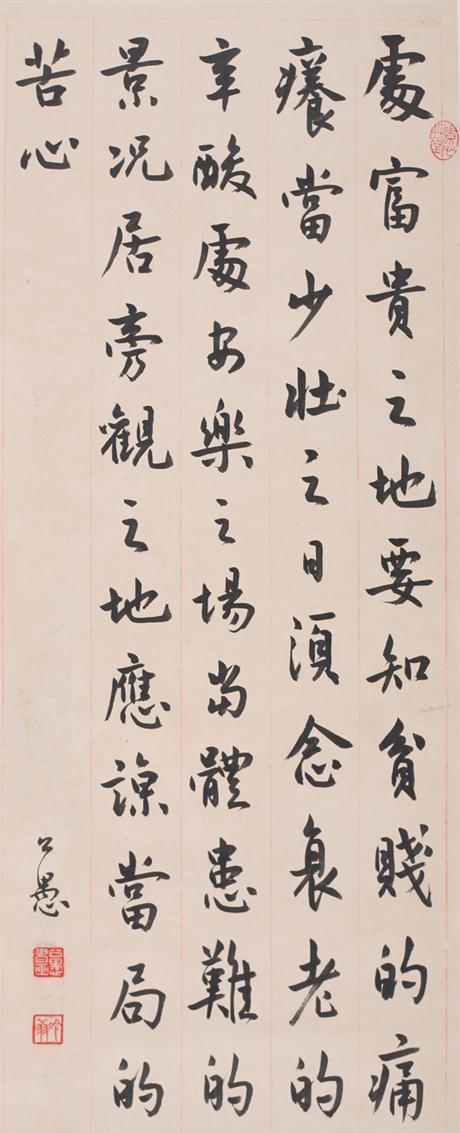 處富貴之地要知貧賤的痛
癢當少壯之日須念衰老的
辛酸處安樂之場當體患難的
景况居旁觀之地應諒當局的
苦心
公愚